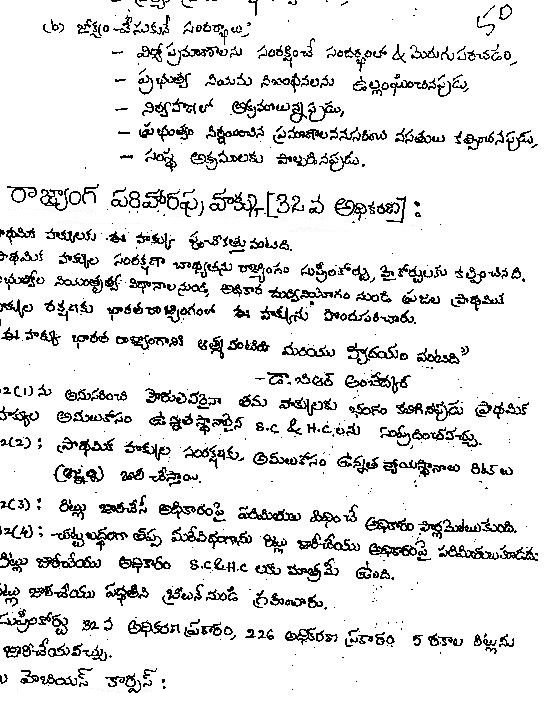 50
(b) జోక్యం చేసుకునే సందర్భాలు:
- విద్యా ప్రమాణాలను సంరక్షించే సందర్భంలో & మెరుగుపరచడం,
- ప్రభుత్వ నియమ నిబంధనలను ఉల్లంఘించినప్పుడు,
- నిర్వహణలో అక్రమాలున్నప్పుడు,
- ప్రభుత్వం నిర్ణయించిన ప్రమాణాలననుసరించి వసతులు కల్పించనప్పుడు,
- సంస్థ అక్రమాలకు పాల్పడినప్పుడు.
రాజ్యాంగ పరిహారపు హక్కు [32వ అధికరణ] :
ప్రాథమిక హక్కులకు ఈ హక్కు వంటిది.
ప్రాథమిక హక్కుల సంరక్షణా బాధ్యతను రాజ్యాంగం సుప్రీంకోర్టు, హైకోర్టులకు కల్పించినది.
ప్రభుత్వాల నియంతృత్వ విధానాలనుండి, అధికార దుర్వినియోగం నుండి ప్రజల ప్రాథమిక
హక్కుల రక్షణకు భారత రాజ్యాంగంలో ఈ హక్కును పొందుపరచారు.
ఈ హక్కు భారత రాజ్యాంగానికి ఆత్మ వంటిది మరియు హృదయం వంటిది"
- డా. బిఆర్ అంబేద్కర్
2(1) ను అనుసరించి పౌరులెవరైనా తమ హక్కులకు భంగం కలిగినప్పుడు ప్రాథమిక
హక్కుల అమలుకోసం ఉన్నత స్థానాలైన S.C & H.C లను సంప్రదించవచ్చు.
2(2) : ప్రాథమిక హక్కుల సంరక్షణకు, అమలుకోసం ఉన్నత న్యాయస్థానాలు రిట్‌లు
(ఆజ్ఞలు) జారీ చేస్తాయి.
2(3) : రిట్లు జారీచేసే అధికారంపై పరిమితులు విధించే అధికారం పార్లమెంటుకుంది.
2(4) : చట్టబద్ధంగా తప్ప మరేవిధంగాను రిట్లు జారీచేయు అధికారంపై పరిమితులుకూడదు
రిట్లు జారీచేయు అధికారం S.C & H.C లకు మాత్రమే ఉంది.
రిట్లు జారీచేయు పద్ధతిని బ్రిటన్ నుండి గ్రహించారు.
సుప్రీంకోర్టు 32 వ అధికరణ ప్రకారం, 226 అధికరణ ప్రకారం 5 రకాల రిట్లను
జారీచేయవచ్చు.
హెబియస్ కార్పస్ :